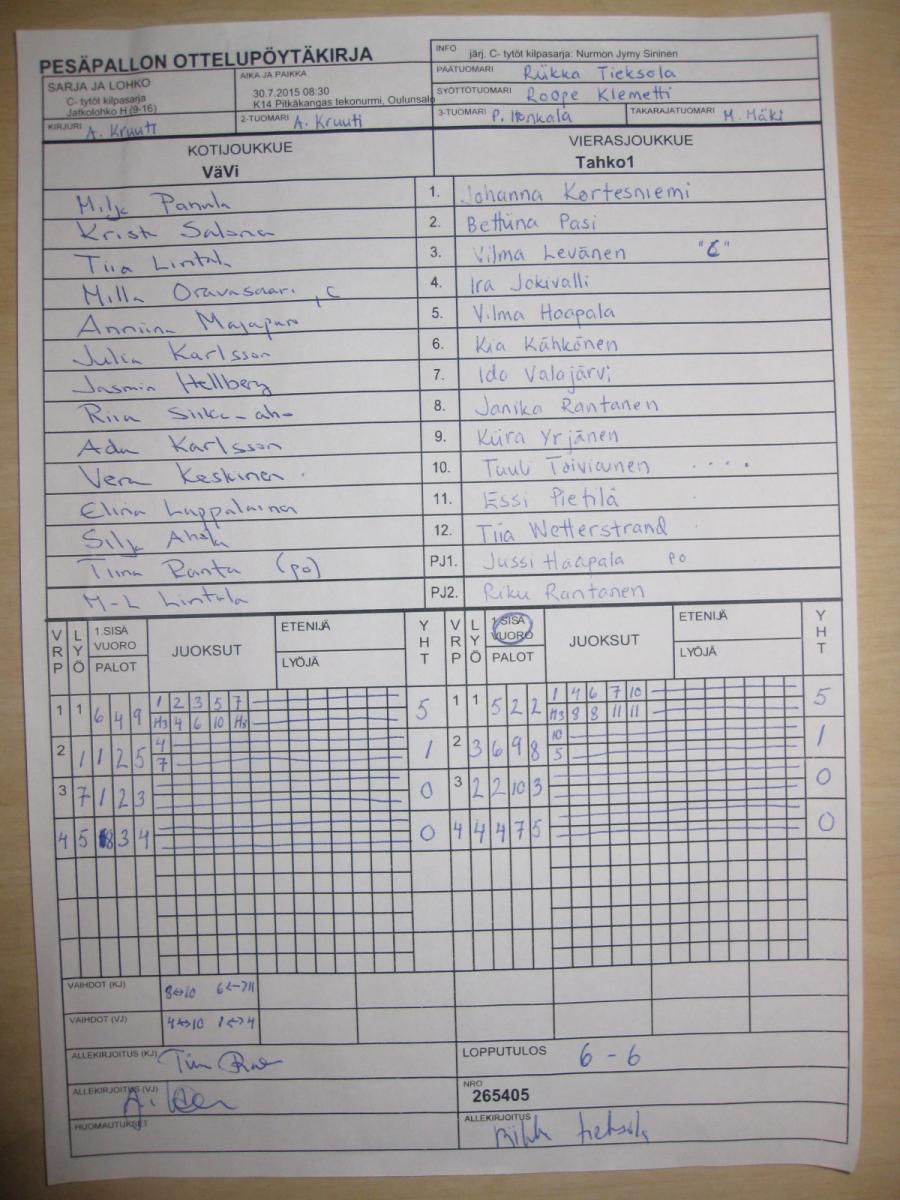 PESÄPALLON OTTELUPÖYTÄKIRJA
INFO järj. C- tytöt kilpasarja: Nurmon Jymy Sininen
SARJA JA LOHKO
C- tytöt kilpasarja
Jatkolohko H (9-16)
AIKA JA PAIKKA
30.7.2015 08:30
K14 Pitkäkangas tekonurmi, Oulunsalo
PÄÄTUOMARI Riikka Tieksola
SYÖTTÖTUOMARI Roope Klemetti
KIRJURI A. Kruuti
2-TUOMARI A. Kruuti
3-TUOMARI P. Honkala
TAKARAJATUOMARI M. Mäki
KOTIJOUKKUE VIERASJOUKKUE
VäVi Tahko1
Milja Panula 1. Johanna Kortesniemi
Krista Salona 2. Bettina Pasi
Tiia Lintala 3. Vilma Levänen "C"
Milla Oravasaari, C 4. Ira Jokivalli
Anniina 5. Vilma Haapala
Julia Karlsson 6. Kia Kähkönen
Jasmin Hellberg 7. Ida Valajärvi
Riia Siika-aho 8. Janika Rantanen
Ada Karlsson 9. Kiira Yrjänen
Vera Keskinen 10. Tuuli Toiviainen
Elina Lappalainen 11. Essi Pietilä
Silja Ahola 12. Tiia Wetterstrand
Tiina Ranta (po) PJ1. Jussi Haapala po
M-L Lintala PJ2. Riku Rantanen
VRP LYÖ 1.SISÄ VUORO PALOT JUOKSUT ETENIJÄ LYÖJÄ YHT VRP LYÖ 1.SISÄ VUORO PALOT JUOKSUT ETENIJÄ LYÖJÄ YHT
1 1 6 4 9 1 2 3 5 7 5 1 1 5 2 2 1 4 6 7 10 5
H3 4 6 10 H5 H3 8 8 11 11
2 1 1 2 5 4 1 2 3 6 9 8 10 1
7 5
3 7 1 2 3 0 3 2 2 10 3 0
4 5 8 3 4 0 4 4 4 7 5 0
VAIHDOT (KJ) 8↔10 6↔11
VAIHDOT (VJ) 4↔10 1↔4
ALLEKIRJOITUS (KJ)
LOPPUTULOS 6 - 6
ALLEKIRJOITUS (VJ)
NRO
265405
HUOMAUTUKSET
ALLEKIRJOITUS Riikka Tieksola